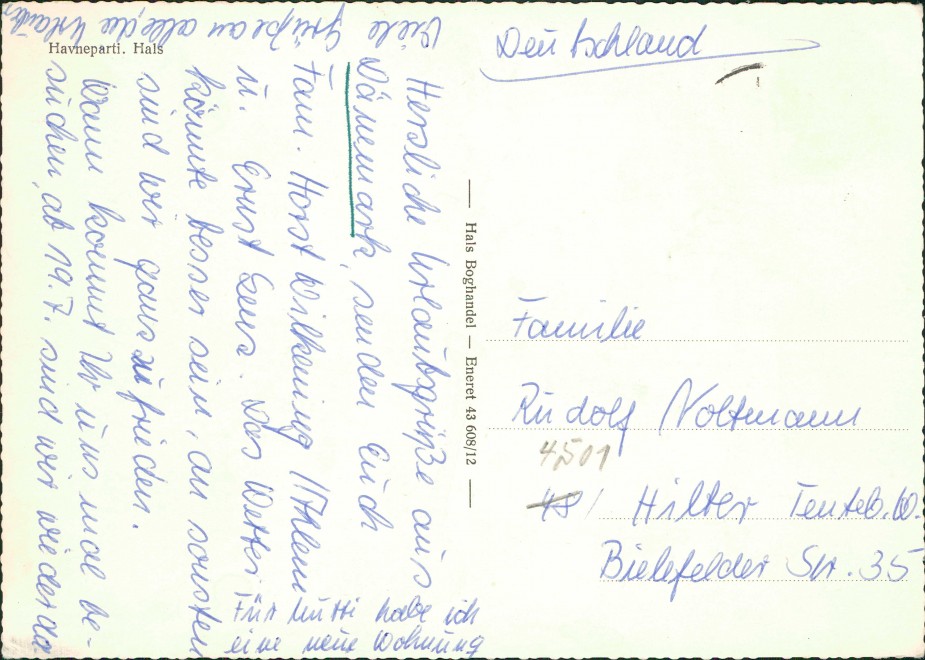 Havneparti. Hals
Herzliche Urlaubsgrüße aus
Dänemark, senden Euch
Fam. Horst Wilkening / Ahlem
u. Ernst Lenz. Das Wetter
könnte besser sein, an sonsten
sind wir ganz zufrieden.
Wann kommt Ihr uns mal be-
suchen, ab 19.7. sind wir wieder da
Viele Grüße an alle, die Urlauber
Für Mutti habe ich
eine neue Wohnung
Hals Boghandel — Eneret 43 608/12
Deutschland
Familie
Rudolf Noltmann
4501
48/ Hilter Teuteb. W.
Bielefelder Str. 35